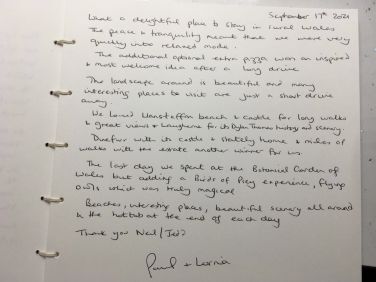 September 17th 2021
What a delightful place to stay in rural Wales
The peace & tranquility meant that we were very
quickly into relaxed mode.
The additional optional extra pizza was an inspired
& most welcome idea after a long drive
The landscape around is beautiful and many
interesting places to visit are just a short drive
away.
We loved Llansteffan beach & castle for long walks
& great views & Laugharne for its Dylan Thomas history and scenery
Dinefwr with its castle & stately home & miles of
walks with the estate another winner for us.
The last day we spent at the Botanical Garden of
Wales but adding a Birds of Prey experience, flying
owls which was truly magical
Beaches, interesting places, beautiful scenery all around
& the hot tub at the end of each day
Thank you Neil/
Paul & Lorna